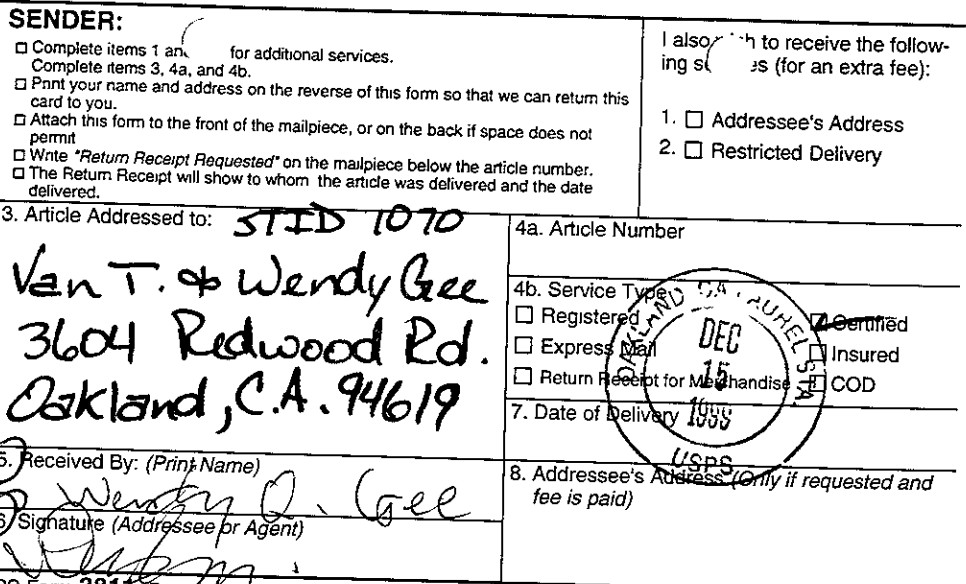 SENDER:
□ Complete items 1 an for additional services.
Complete items 3, 4a, and 4b.
□ Print your name and address on the reverse of this form so that we can return this
card to you.
□ Attach this form to the front of the mailpiece, or on the back if space does not
permit
□ Write "Return Receipt Requested" on the mailpiece below the article number.
□ The Return Receipt will show to whom the article was delivered and the date
delivered.
I also to receive the follow-
ing (for an extra fee):
1. □ Addressee's Address
2. □ Restricted Delivery
3. Article Addressed to: STID 1070
Van T. & Wendy Gee
3604 Redwood Rd.
Oakland, C.A. 94619
4a. Article Number
4b. Service Type
□ Registered
☑ Certified
□ Express Mail
□ Insured
□ Return Receipt for Merchandise
□ COD
7. Date of Delivery
OAKLAND CA LAUREL STA.
DEC
15
USPS
5. Received By: (Print Name)
Wendy Q. Gee
6. Signature (Addressee or Agent)
8. Addressee's Address (Only if requested and
fee is paid)